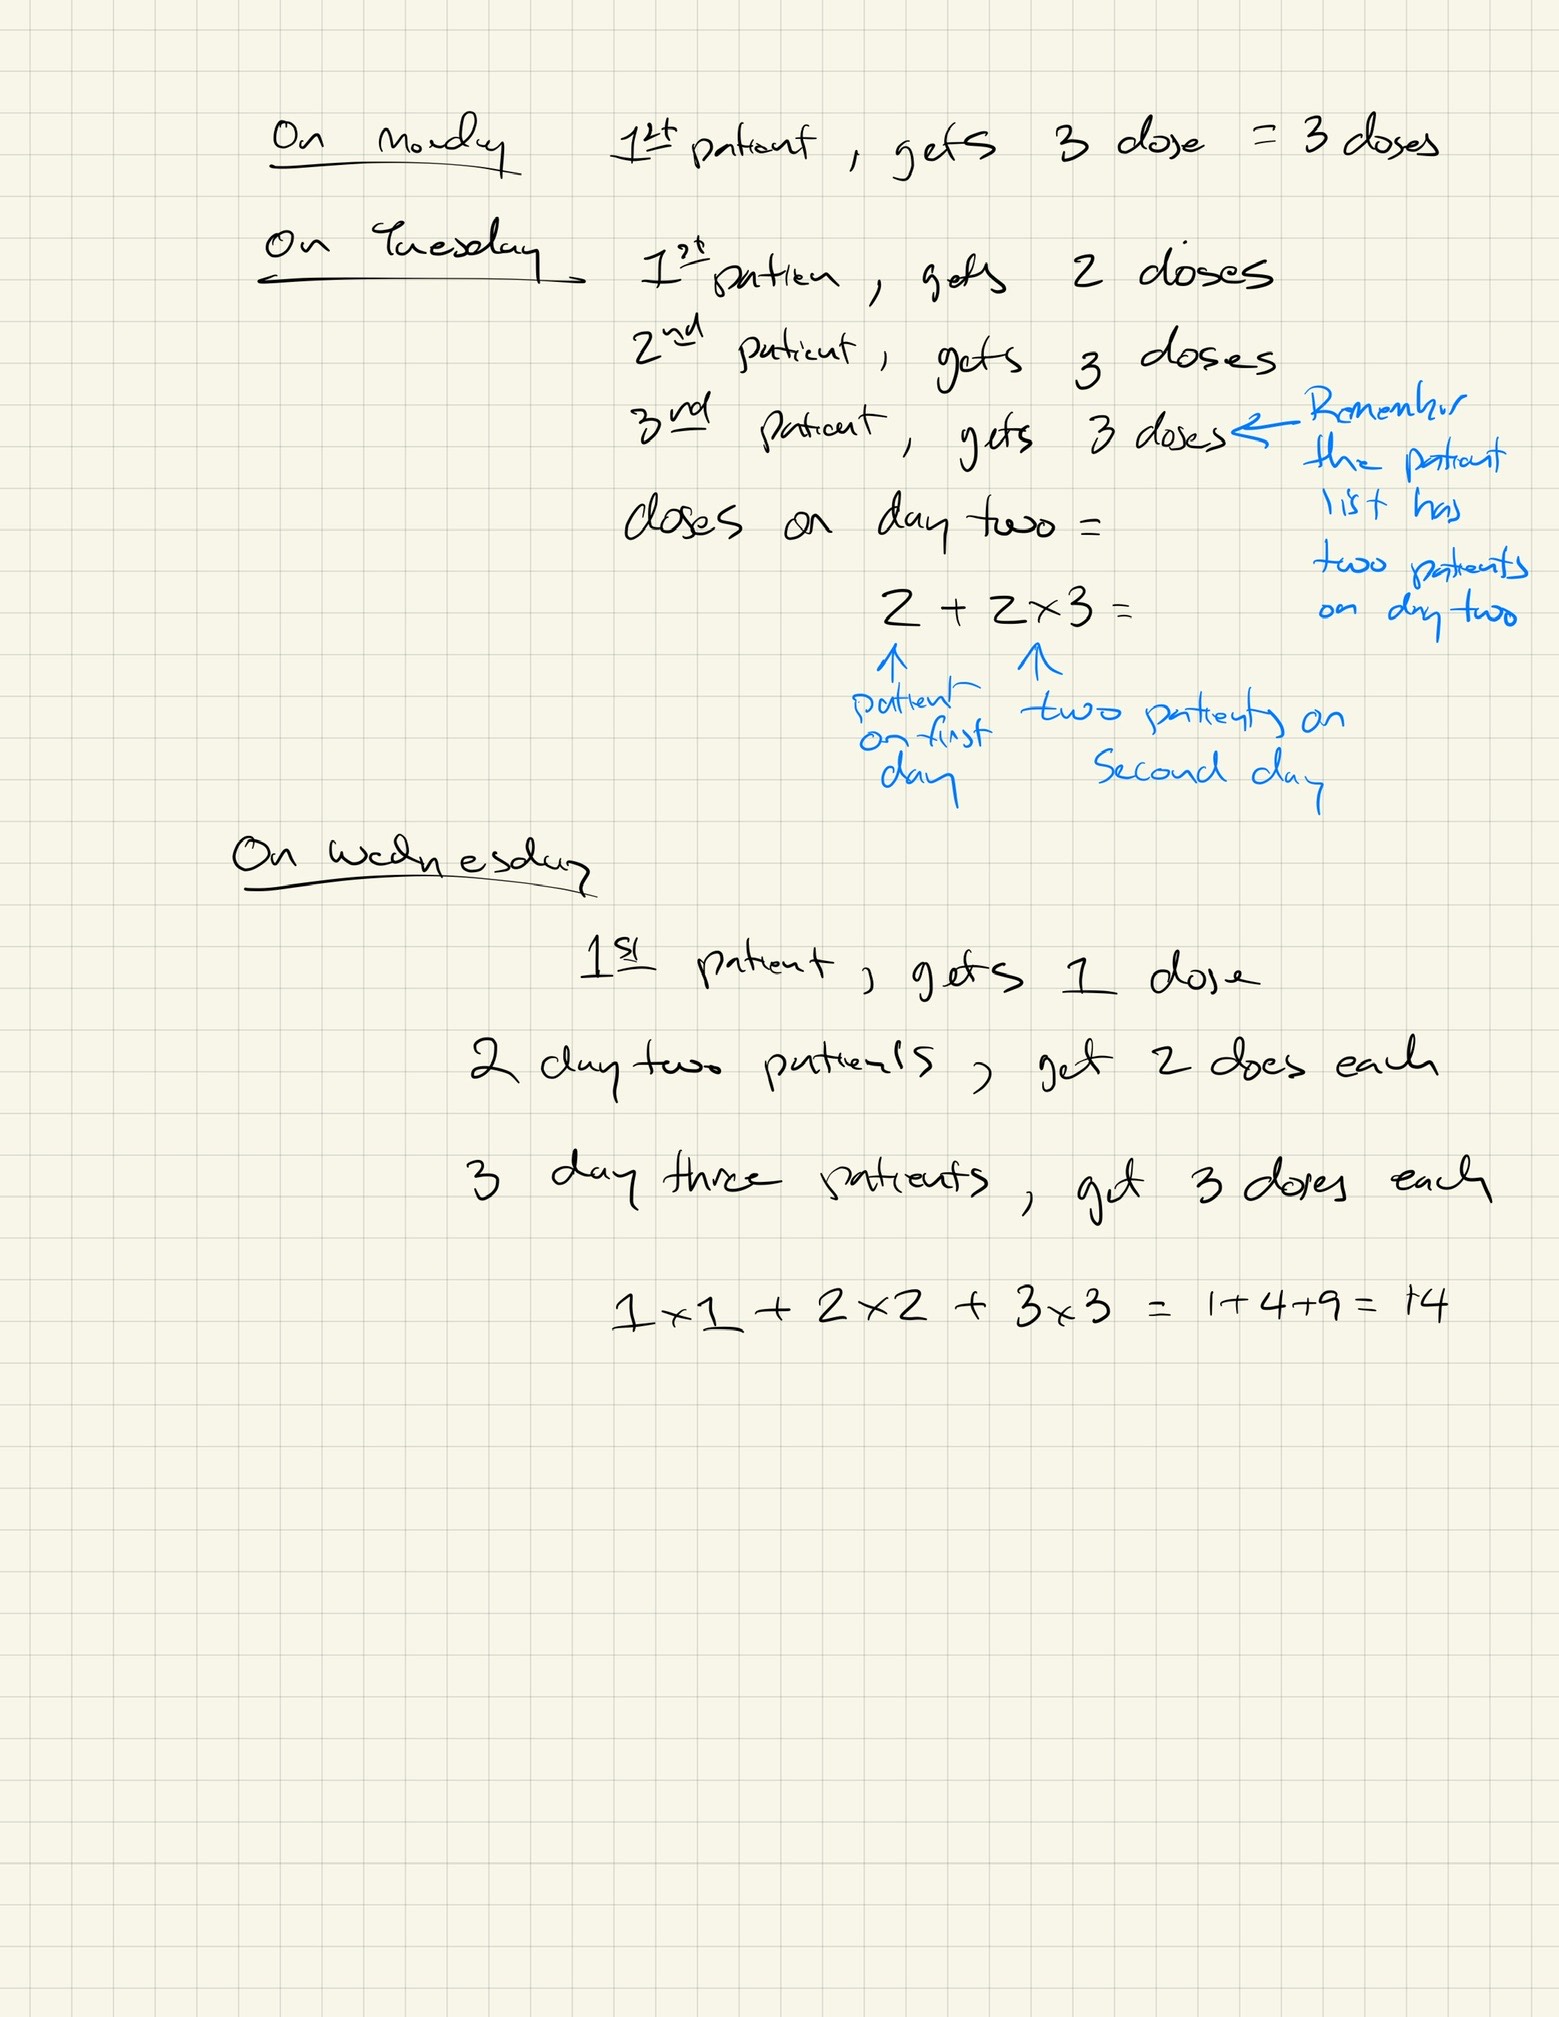 On Monday 1st patient, gets 3 dose = 3 doses
On Tuesday
1st patien, gets 2 doses
2nd patient, gets 3 doses
3rd patient, gets 3 doses ←
Remember
the patient
list has
two patients
on day two
doses on day two =
2 + 2×3 =
↑ ↑
patient
on first
day
two patients on
Second day
On Wednesday
1st patient, gets 1 dose
2 day two patients, get 2 does each
3 day three patients, get 3 doses each
1×1 + 2×2 + 3×3 = 1+4+9 = 14